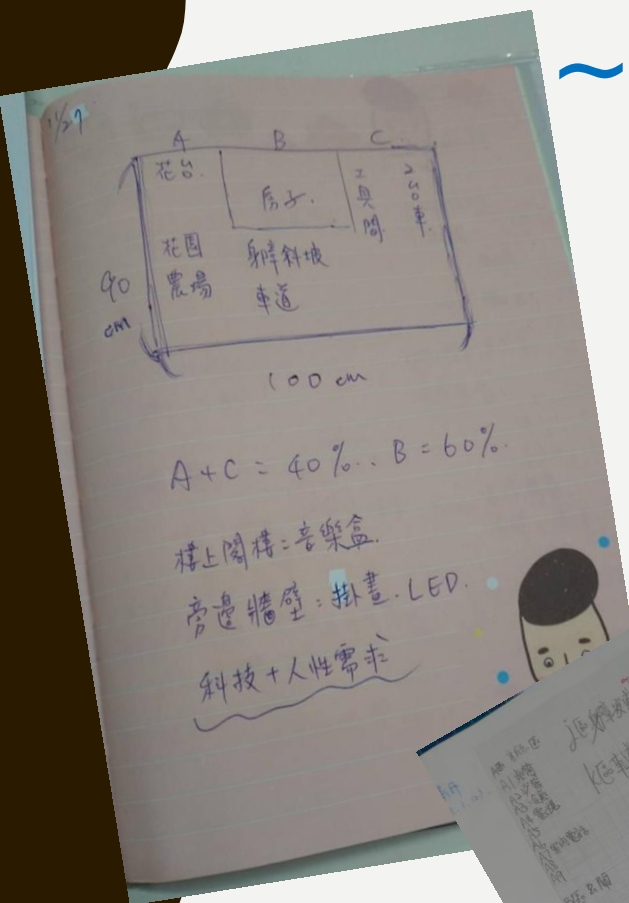 ~
11/27
A B C
花台
房子.
工具間
2台車
花園
農場
身障斜坡
車道
90
cm
100 cm
A+C = 40%.. B = 60%.
樓上閣樓=音樂盒.
旁邊牆壁:掛畫.LED.
科技+人性需求